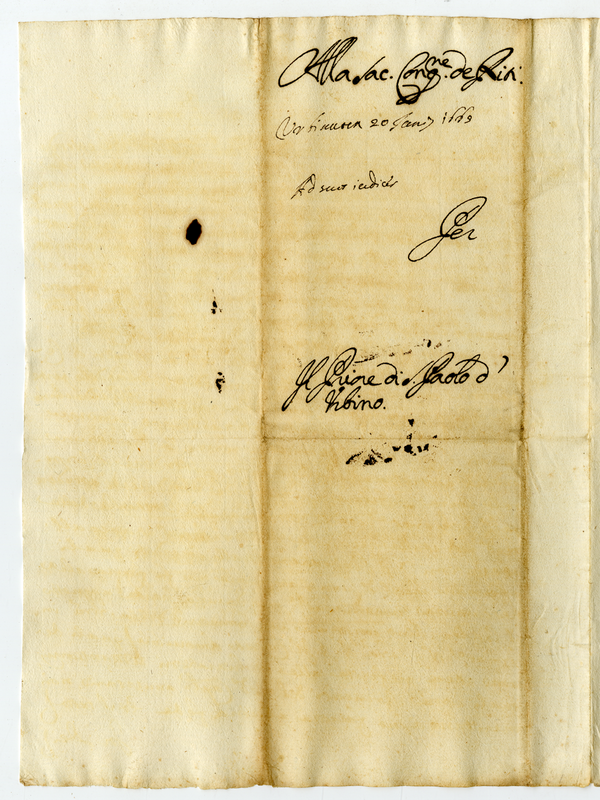 Alla Sac. Congne. de Riti:
Urbinaten 20 Junij 1669
Ad suos iudices
Per
Il Priore di S. Paolo d'
Urbino.